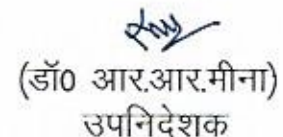 (डॉ0 आर.आर.मीना)
उपनिदेशक